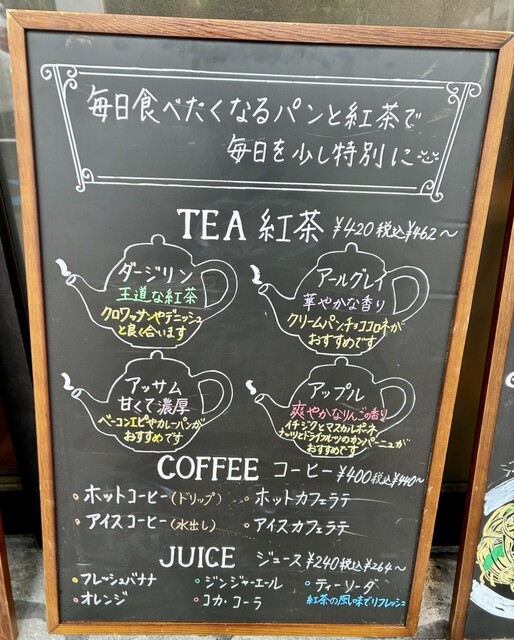 毎日食べたくなるパンと紅茶で
毎日を少し特別に
TEA 紅茶 ¥420 税込¥462〜
ダージリン
王道な紅茶
クロワッサンやデニッシュ
と良く合います
アールグレイ
華やかな香り
クリームパンチョココロネが
おすすめです
アッサム
甘くて濃厚
ベーコンエピやカレーパンが
おすすめです
アップル
爽やかなりんごの香り
イチジクとマスカルポネ
ナッツとドライフルーツのカンパーニュが
おすすめです
COFFEE コーヒー ¥400 税込¥440〜
・ホットコーヒー(ドリップ) ・ホットカフェラテ
・アイスコーヒー(水出し) ・アイスカフェラテ
JUICE ジュース ¥240 税込¥264〜
・フレッシュバナナ ・ジンジャーエール ・ティーソーダ
・オレンジ ・コカ・コーラ 紅茶の風味でリフレッシュ